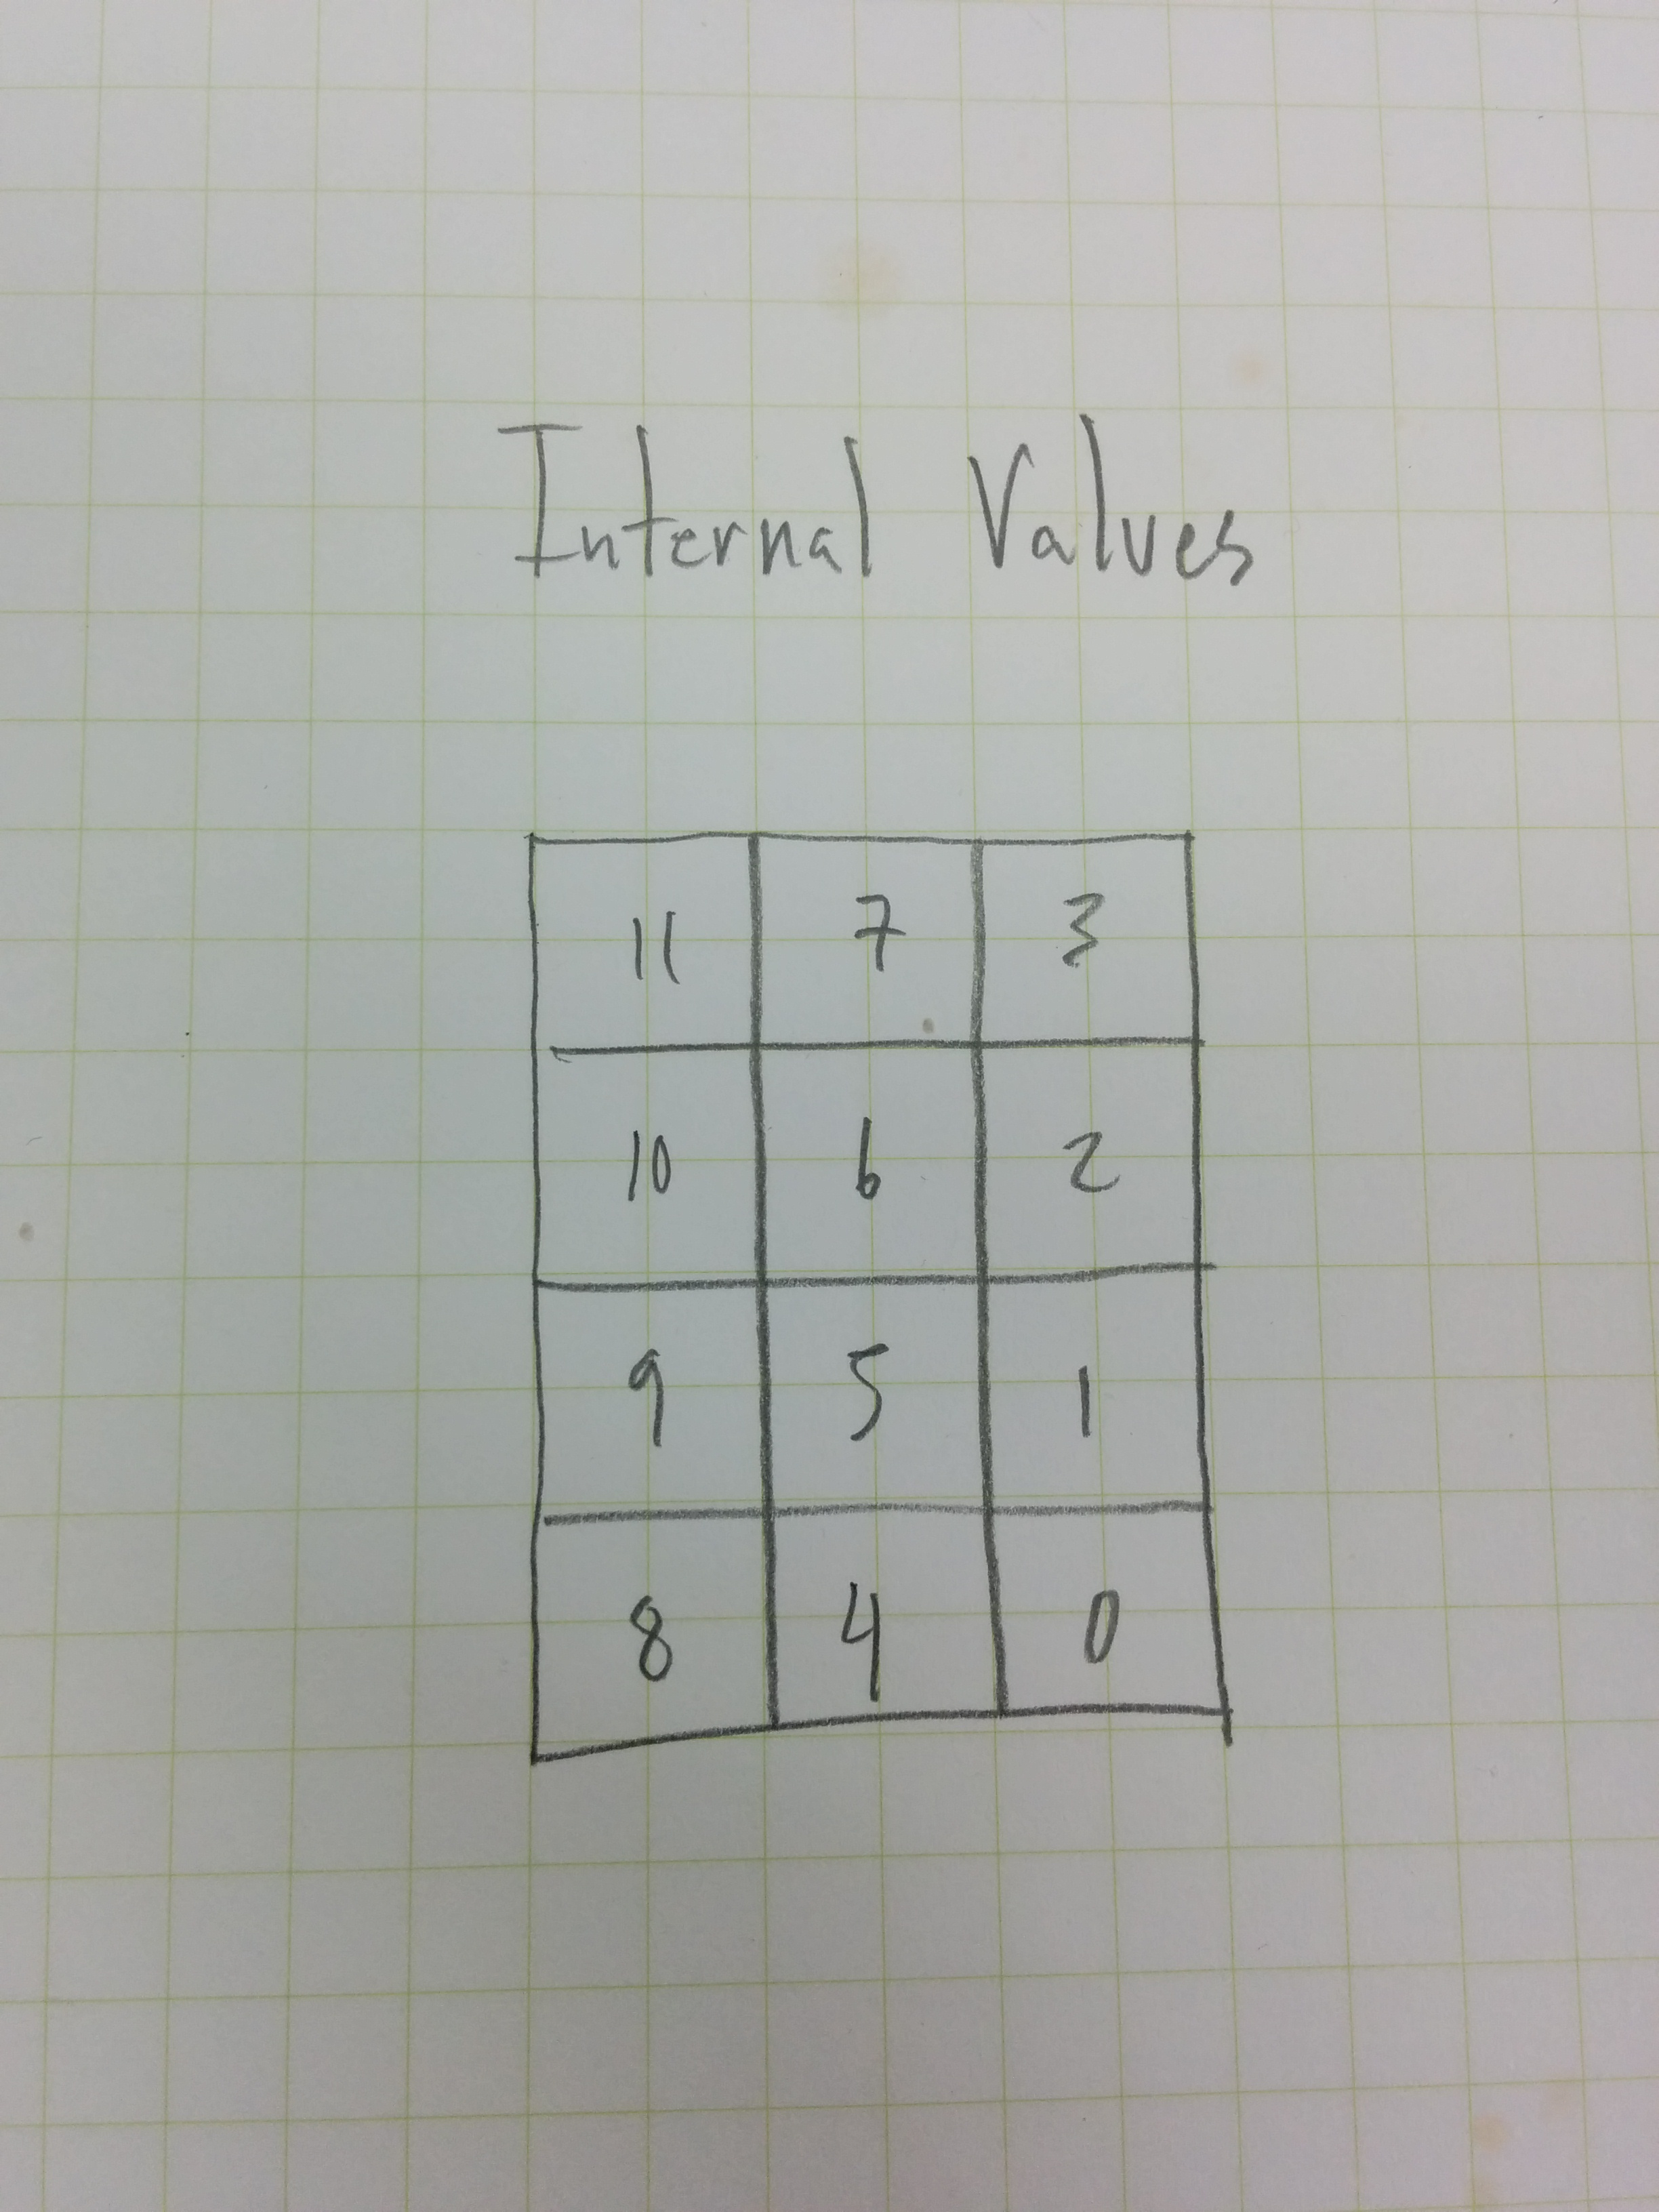 Internal Values
11 7 3
10 6 2
9 5 1
8 4 0